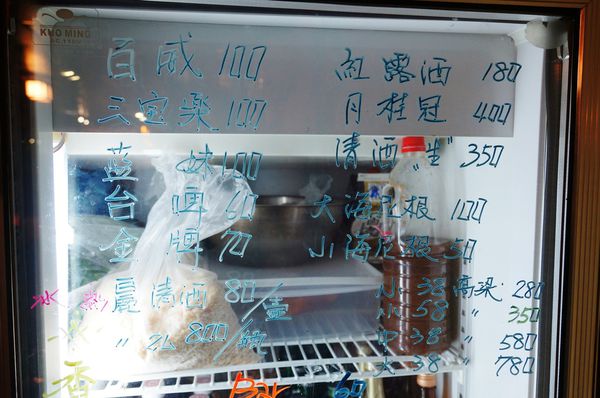 KUO MING
百威 100
三宝樂 100
藍妹 100
台啤 60
金牌 70
晨清酒 80/壺
〃 ZL 800/瓶
冰 熱
香
Bar 60
紅露酒 180
月桂冠 400
清酒"生" 350
大海尼根 100
小海尼根 50
小 38 高梁 280
小 58 〃 350
中 38 〃 580
大 38 〃 780